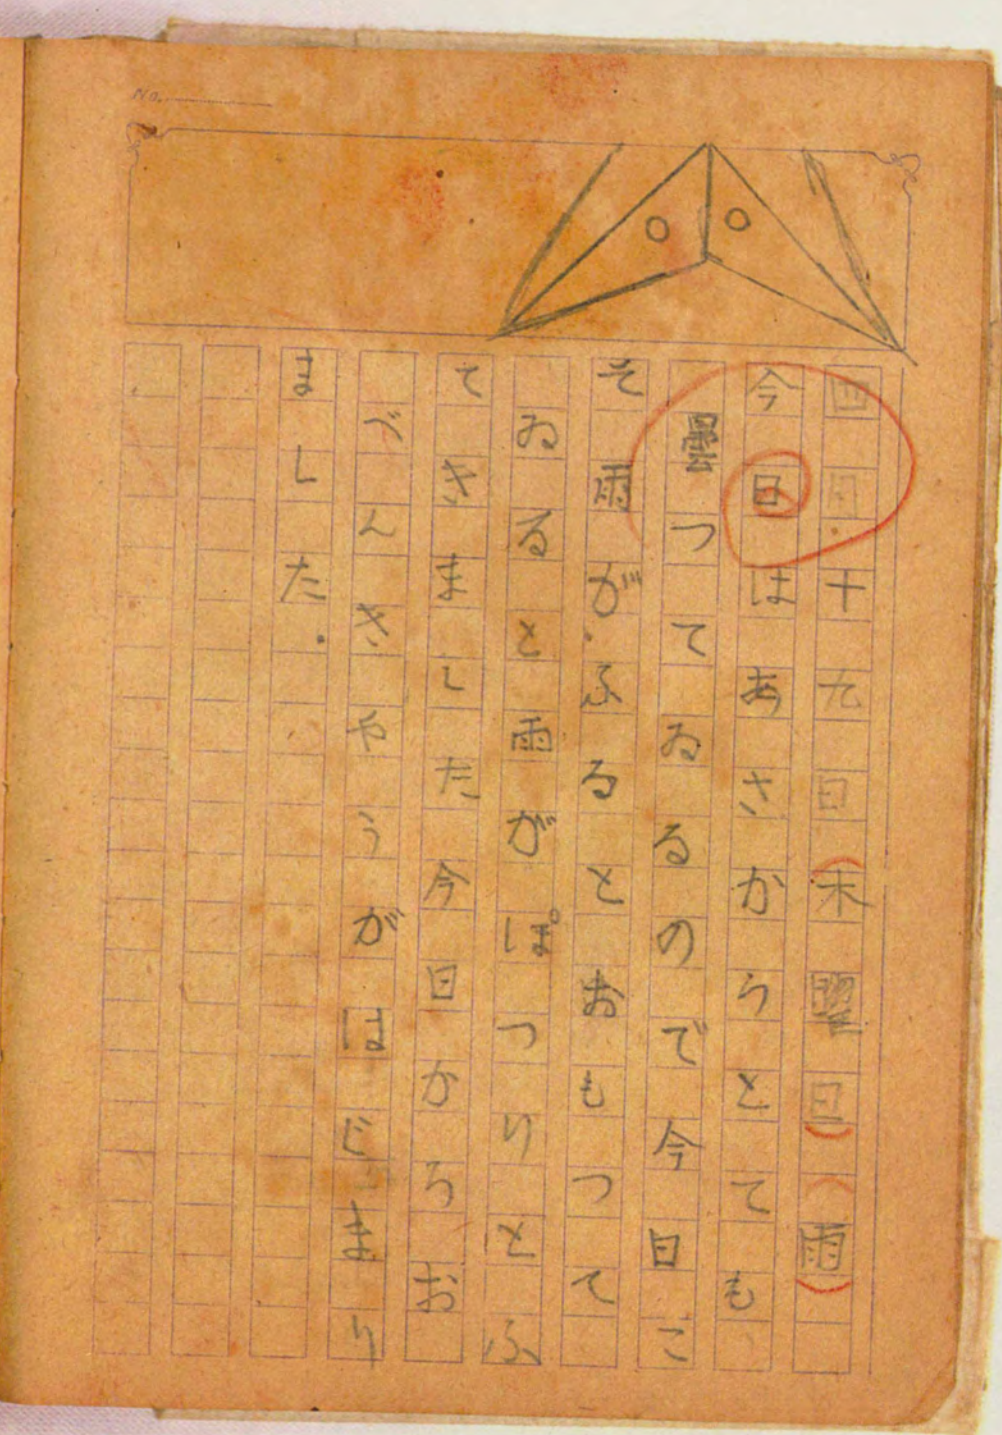 No.
四月十九日(木曜日)(雨)
今日はあさからうとても
曇つてゐるので今日こ
そ雨がふるとおもつて
ゐると雨がぽつりとふ
てきました今日からお
べんきやうがはじまり
ました.